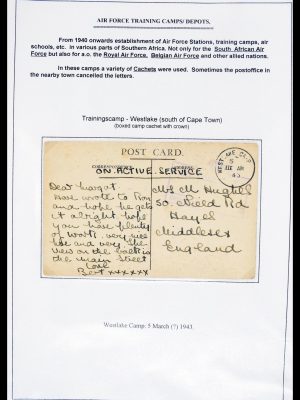 AIR FORCE TRAINING CAMPS/ DEPOTS.
From 1940 onwards establishment of Air Force Stations, training camps, air
schools, etc. in various parts of Southern Africa. Not only for the South African Air
Force but also for a.o. the Royal Air Force, Belgian Air Force and other allied nations.
In these camps a variety of Cachets were used. Sometimes the postoffice in
the nearby town cancelled the letters.
Trainingscamp - Westlake (south of Cape Town)
(boxed camp cachet with crown)
POST CARD.
CORRESPONDENCE
ON ACTIVE SERVICE
Dear Margot
Have wrote to Ron
and hope he gets
it alright hope
you have plenty
of work. very nice
here and very. The
view on the back is
the main street
Love
Bert xxxxxx
WEST LAKE
5
43
Mrs M Hughill
50. Nield Rd
Hayes
Middlesex
England
Westlake Camp. 5 March (?) 1943.